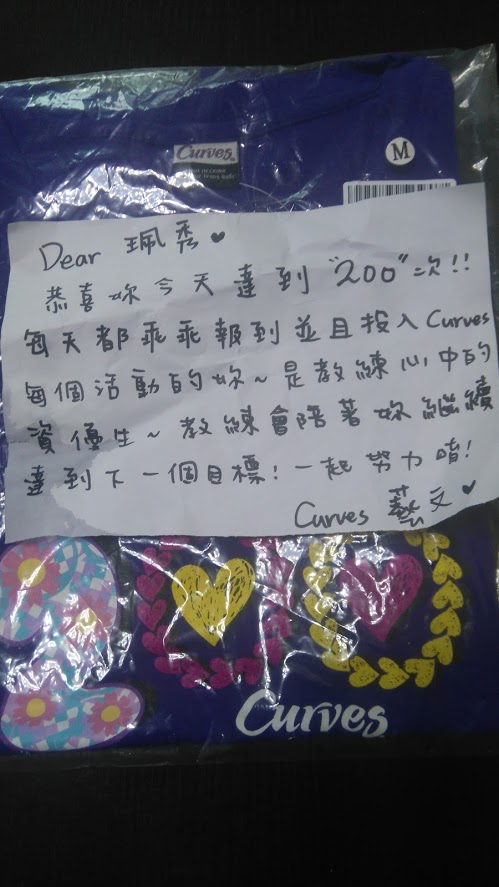 Curves
M
Dear 珮秀♥
恭喜妳今天達到"200"次!!
每天都乖乖報到並且投入Curves
每個活動的妳~是教練心中的
資優生~教練會陪著妳繼續
達到下一個目標!一起努力唷!
Curves 藝文♥
Curves